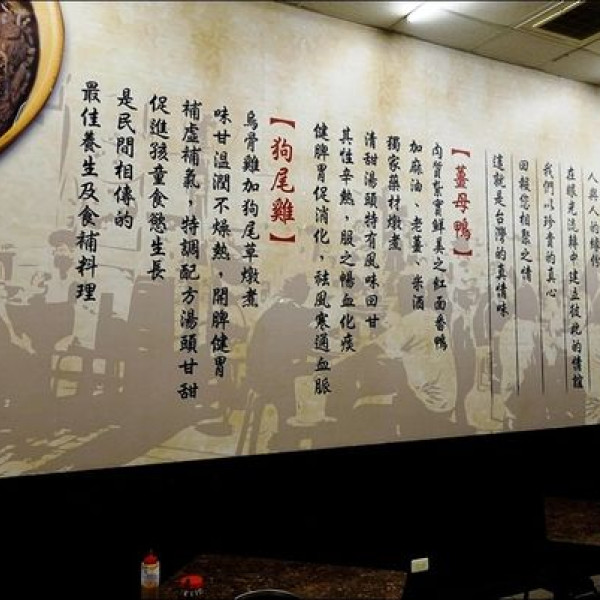 人與人的緣份
在眼光流轉中建立彼此的情誼
我們以珍貴的真心
回報您相聚之情
這就是台灣的真情味
【薑母鴨】
肉質紮實鮮美之紅面番鴨
加麻油、老薑、米酒
獨家藥材燉煮
清甜湯頭特有風味回甘
其性辛熱，服之暢血化痰
健脾胃促消化、祛風寒通血脈
【狗尾雞】
烏骨雞加狗尾草燉煮
味甘溫潤不燥熱，開脾健胃
補虛補氣，特調配方湯頭甘甜
促進孩童食慾生長
是民間相傳的
最佳養生及食補料理